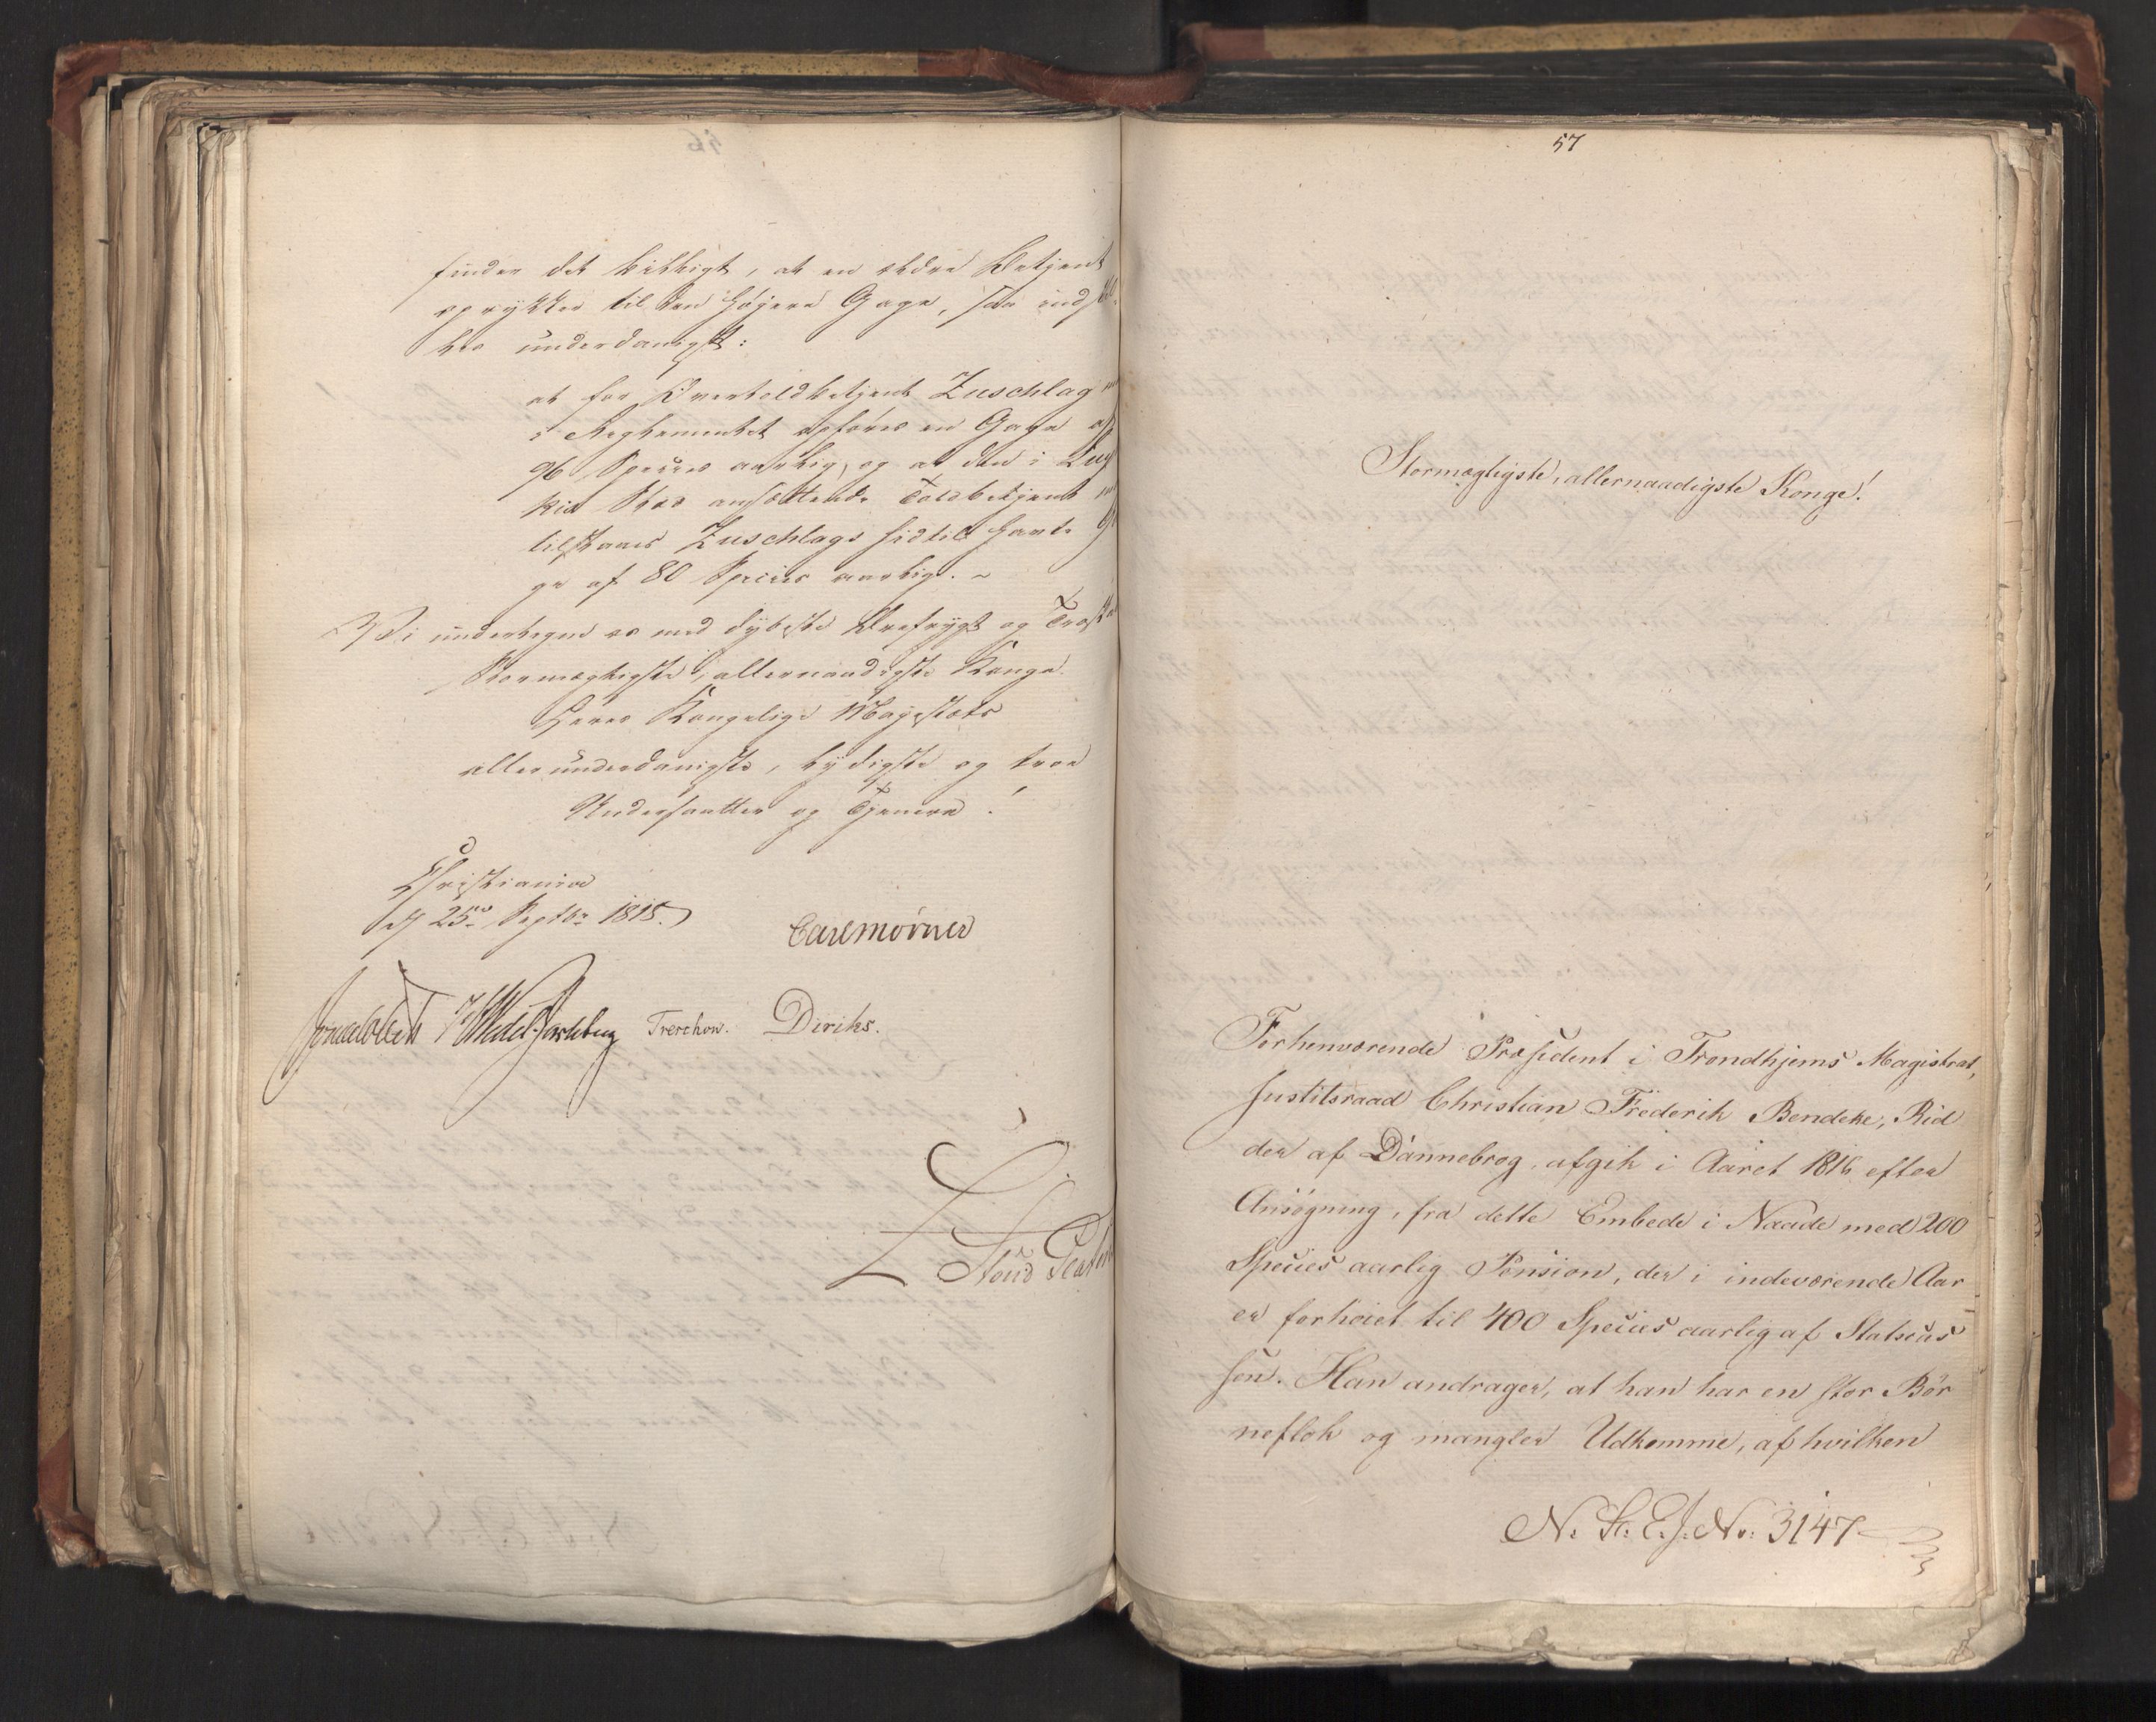 finder det billigt, at en ældre Betjent
oprykker til den høiere Gage, saa indstil-
les underdanigst:
at for Overtoldbetjent Zuschlag
i Reglementet opføres en Gage af
96 Species aarlig, og at den i
Sted ansættende Toldbetjent
tilstaaes Zuschlags hidtil havte Ga-
ge af 80 Species aarlig. ~
Vi undertegne os med dybeste Ærefrygt og Troskab
Stormægtigste, allernaadigste Konge
Deres Kongelige Majestæts
allerunderdanigste, lydigste og troe
Undersaatter og Tjenere!
Christiania
d. 25de Septbr 1818.
Carl Mörner
Jonas Collett H Wedel-Jarlsberg Treschow. Diriks.
57
Stormægtigste, allernaadigste Konge!
Forhenværende Præsident i Trondhjems Magistrat,
Justitsraad Christian Frederik Bendeke, Rid
der af Dannebrog, afgik i Aaret 1816 efter
Ansøgning, fra dette Embede i Naade med 200
Species aarlig Pension, der i indeværende Aar
er forhøiet til 400 Species aarlig af Statscas
sen. Han andrager, at han har en stor Bør
neflok og mangler Udkomme, af hvilken
N: St: E. J: No: 3147